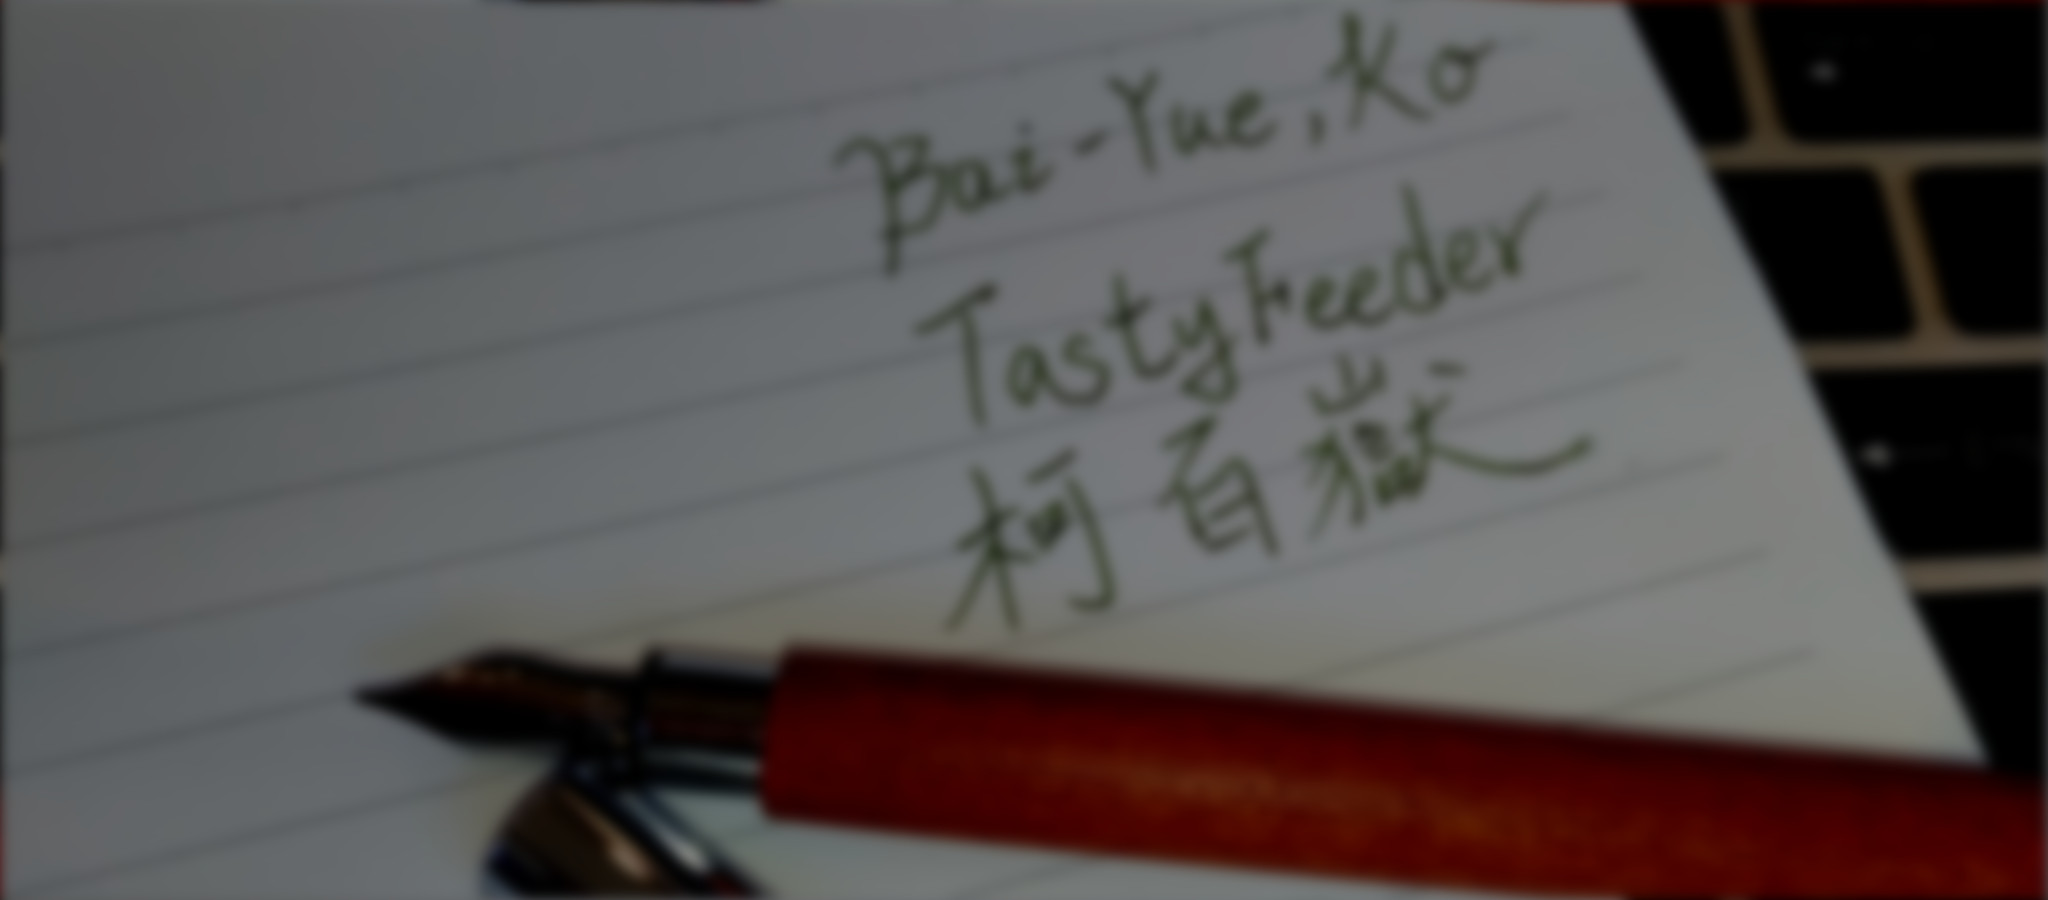 Bai-Yue, Ko
TastyFeeder
柯百嶽